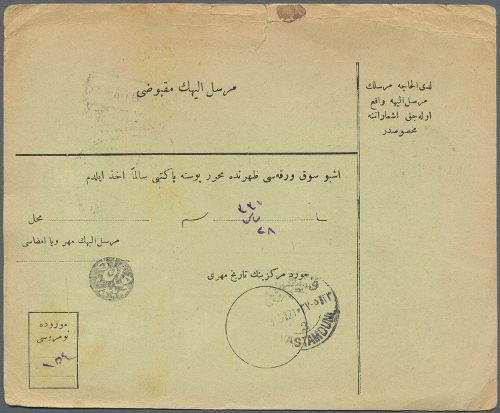 مرسل اليهك مقبوضى
لدى الحاجه مرسلك
مرسل اليهه واقع
اوله‌جق اشعاراتنه
مخصوصدر
اشبو سوق ورقه‌سى ظهرنده محرر پوسته پاكتى سالماً اخذ ايلدم
محل
سم
سا
٣٣١
٢٨
مرسل اليهك مهر ويا امضاسى
مورد مركزينك تاريخ مهرى
موروده
نومروسى
ASTAMOUNI